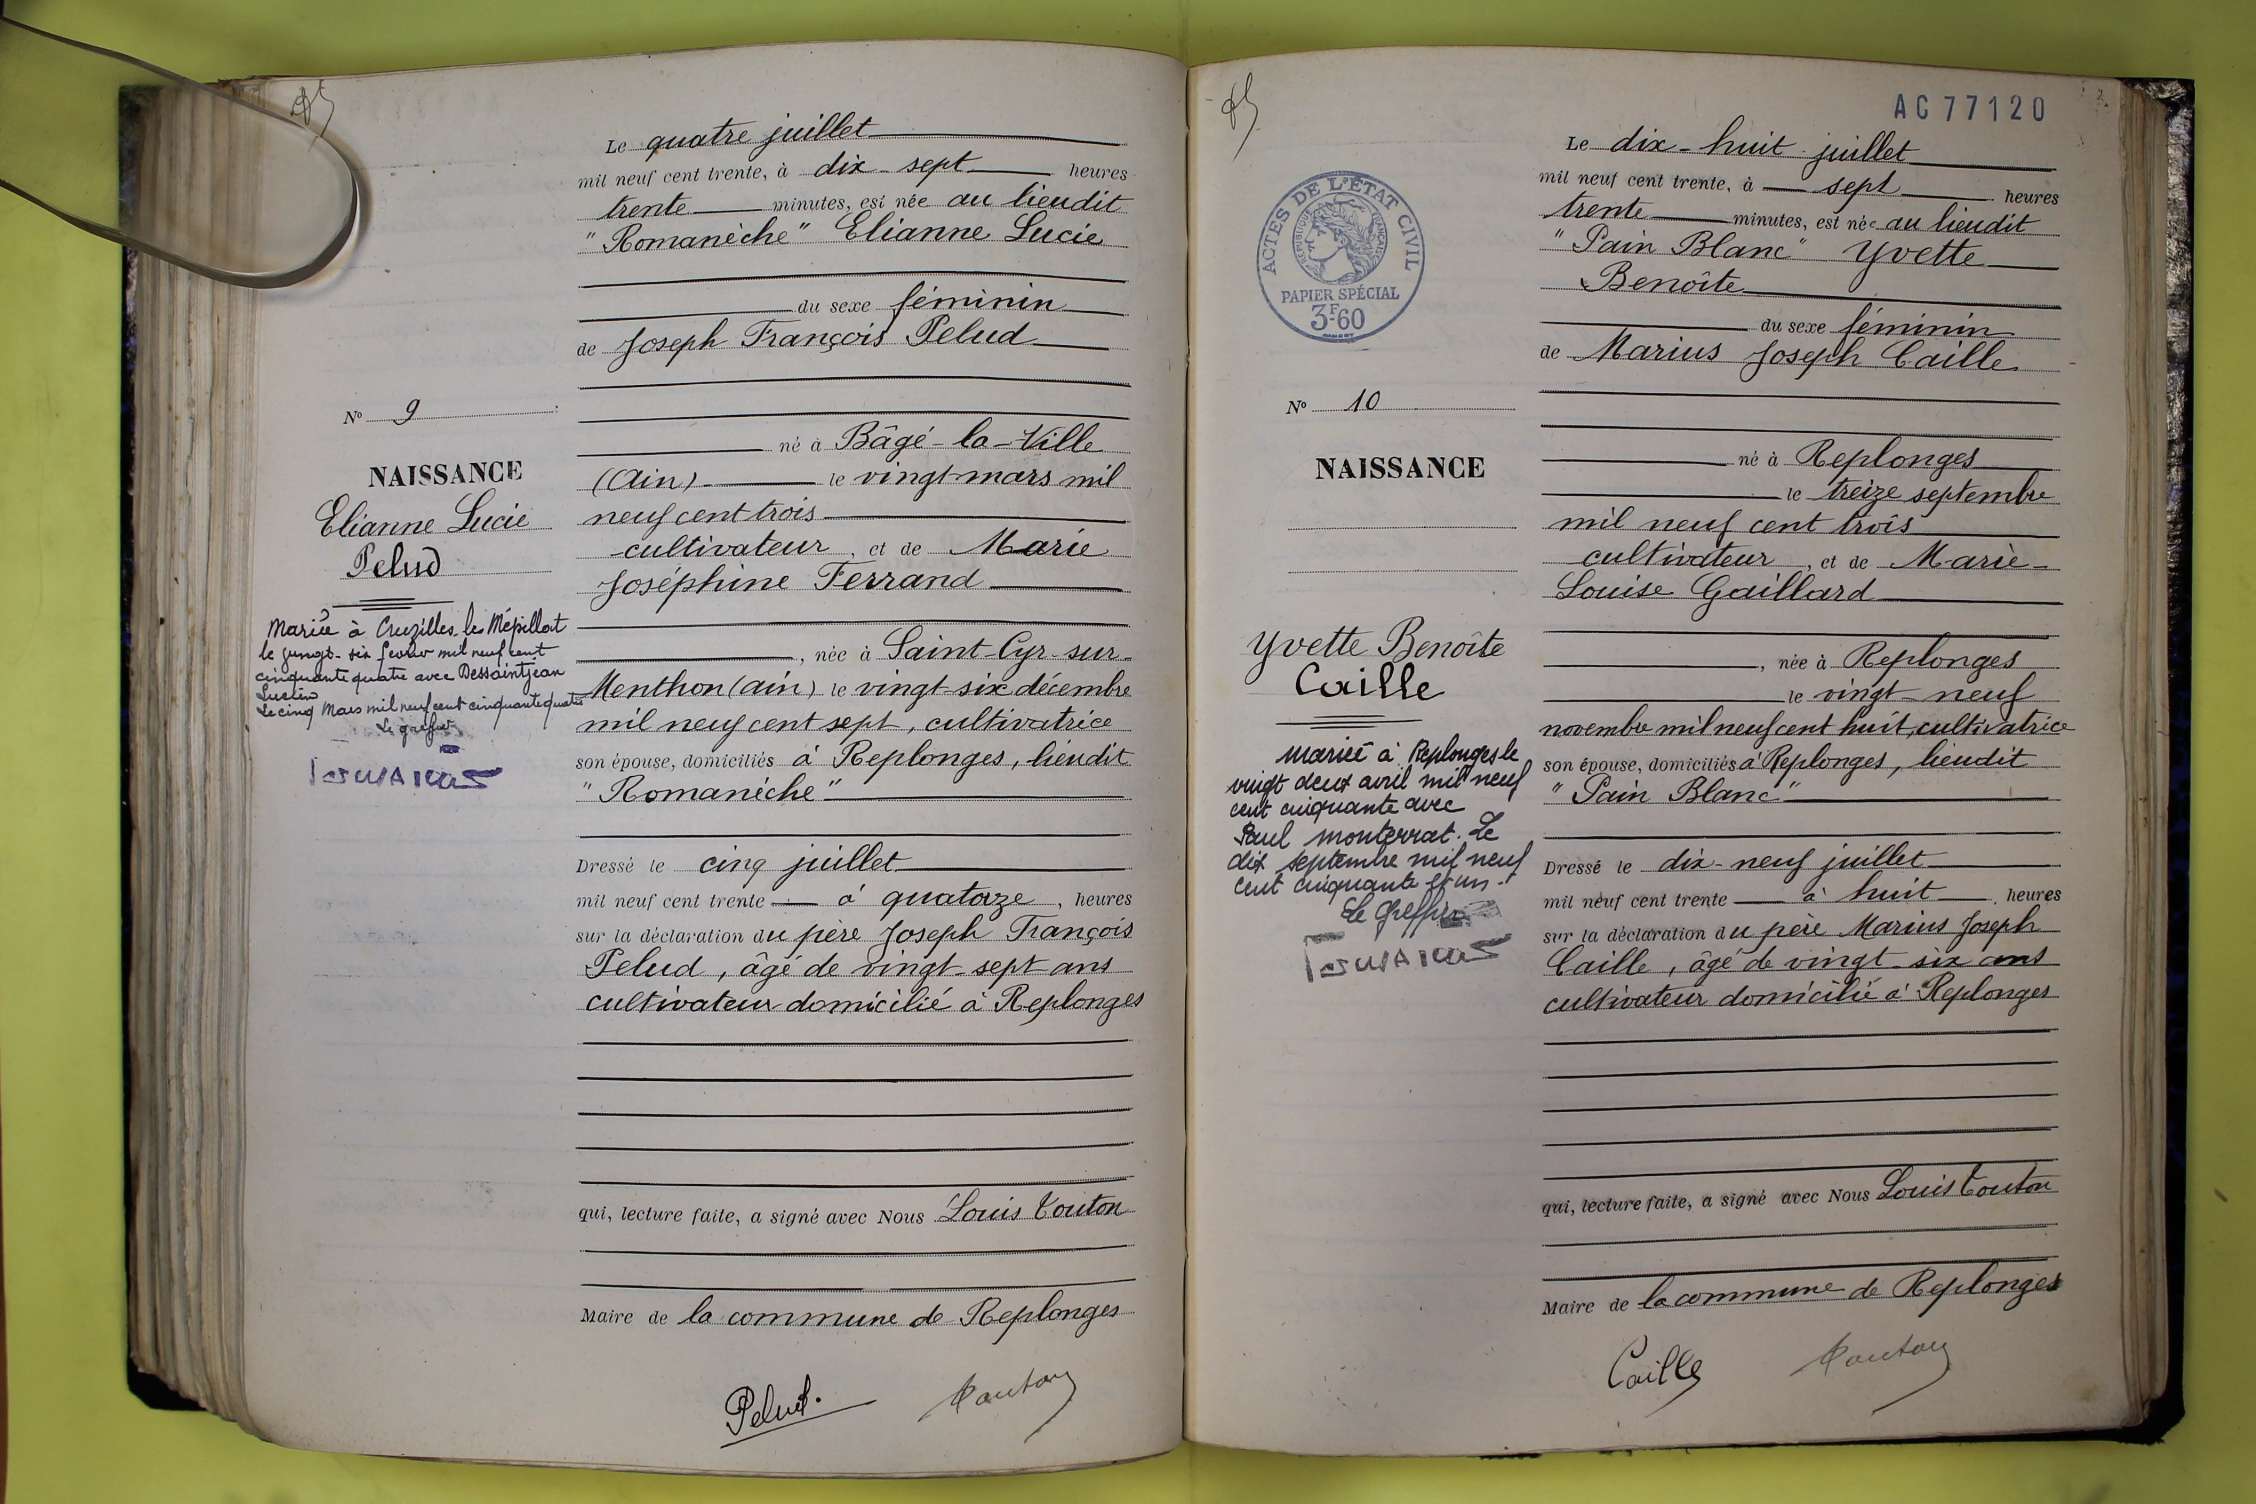 Le quatre juillet
mil neuf cent trente, à dix-sept heures
trente minutes, est née au lieudit
"Romanèche" Elianne Lucie
du sexe féminin
de Joseph François Pelud
né à Bâgé-la-Ville
(Ain) le vingt mars mil
neuf cent trois
cultivateur, et de Marie
Joséphine Ferrand
, née à Saint-Cyr-sur-
Menthon (ain) le vingt-six décembre
mil neuf cent sept, cultivatrice
son épouse, domiciliés à Replonges, lieudit
"Romanèche"
Dressé le cinq juillet
mil neuf cent trente à quatorze, heures
sur la déclaration du père Joseph François
Pelud, âgé de vingt-sept ans
cultivateur domicilié à Replonges
qui, lecture faite, a signé avec Nous Louis Touton
Maire de la commune de Replonges
Pelud.
Touton
No 9
NAISSANCE
Elianne Lucie
Pelud
Mariée à Cruzilles-les-Mépillat
le vingt-six février mil neuf cent
cinquante quatre avec Dessaintjean
Lucien
Le cinq Mars mil neuf cent cinquante quatre
Le greffier
AC77120
ACTES DE L'ÉTAT CIVIL
RÉPUBLIQUE FRANÇAISE
PAPIER SPÉCIAL
3F60
No 10
NAISSANCE
Yvette Benoîte
Caille
Mariée à Replonges le
vingt deux avril mil neuf
cent cinquante avec
Paul Monterrat. Le
dix septembre mil neuf
cent cinquante et un.
Le Greffier
Le dix-huit juillet
mil neuf cent trente, à sept heures
trente minutes, est née au lieudit
"Pain Blanc" Yvette
Benoîte
du sexe féminin
de Marius Joseph Caille
né à Replonges
le treize septembre
mil neuf cent trois
cultivateur, et de Marie-
Louise Gaillard
, née à Replonges
le vingt-neuf
novembre mil neuf cent huit, cultivatrice
son épouse, domiciliés à Replonges, lieudit
"Pain Blanc"
Dressé le dix-neuf juillet
mil neuf cent trente à huit, heures
sur la déclaration du père Marius Joseph
Caille, âgé de vingt-six ans
cultivateur domicilié à Replonges
qui, lecture faite, a signé avec Nous Louis Touton
Maire de la commune de Replonges
Caille
Touton